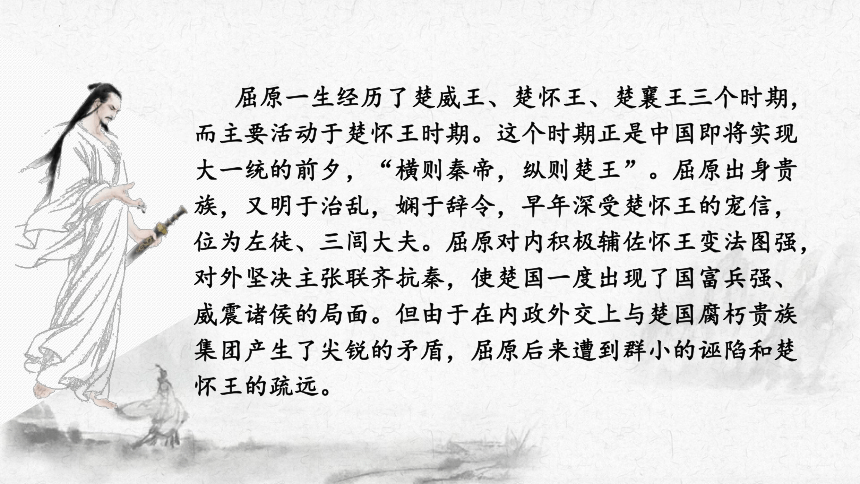 屈原一生经历了楚威王、楚怀王、楚襄王三个时期，
而主要活动于楚怀王时期。这个时期正是中国即将实现
大一统的前夕，“横则秦帝，纵则楚王”。屈原出身贵
族，又明于治乱，娴于辞令，早年深受楚怀王的宠信，
位为左徒、三闾大夫。屈原对内积极辅佐怀王变法图强，
对外坚决主张联齐抗秦，使楚国一度出现了国富兵强、
威震诸侯的局面。但由于在内政外交上与楚国腐朽贵族
集团产生了尖锐的矛盾，屈原后来遭到群小的诬陷和楚
怀王的疏远。